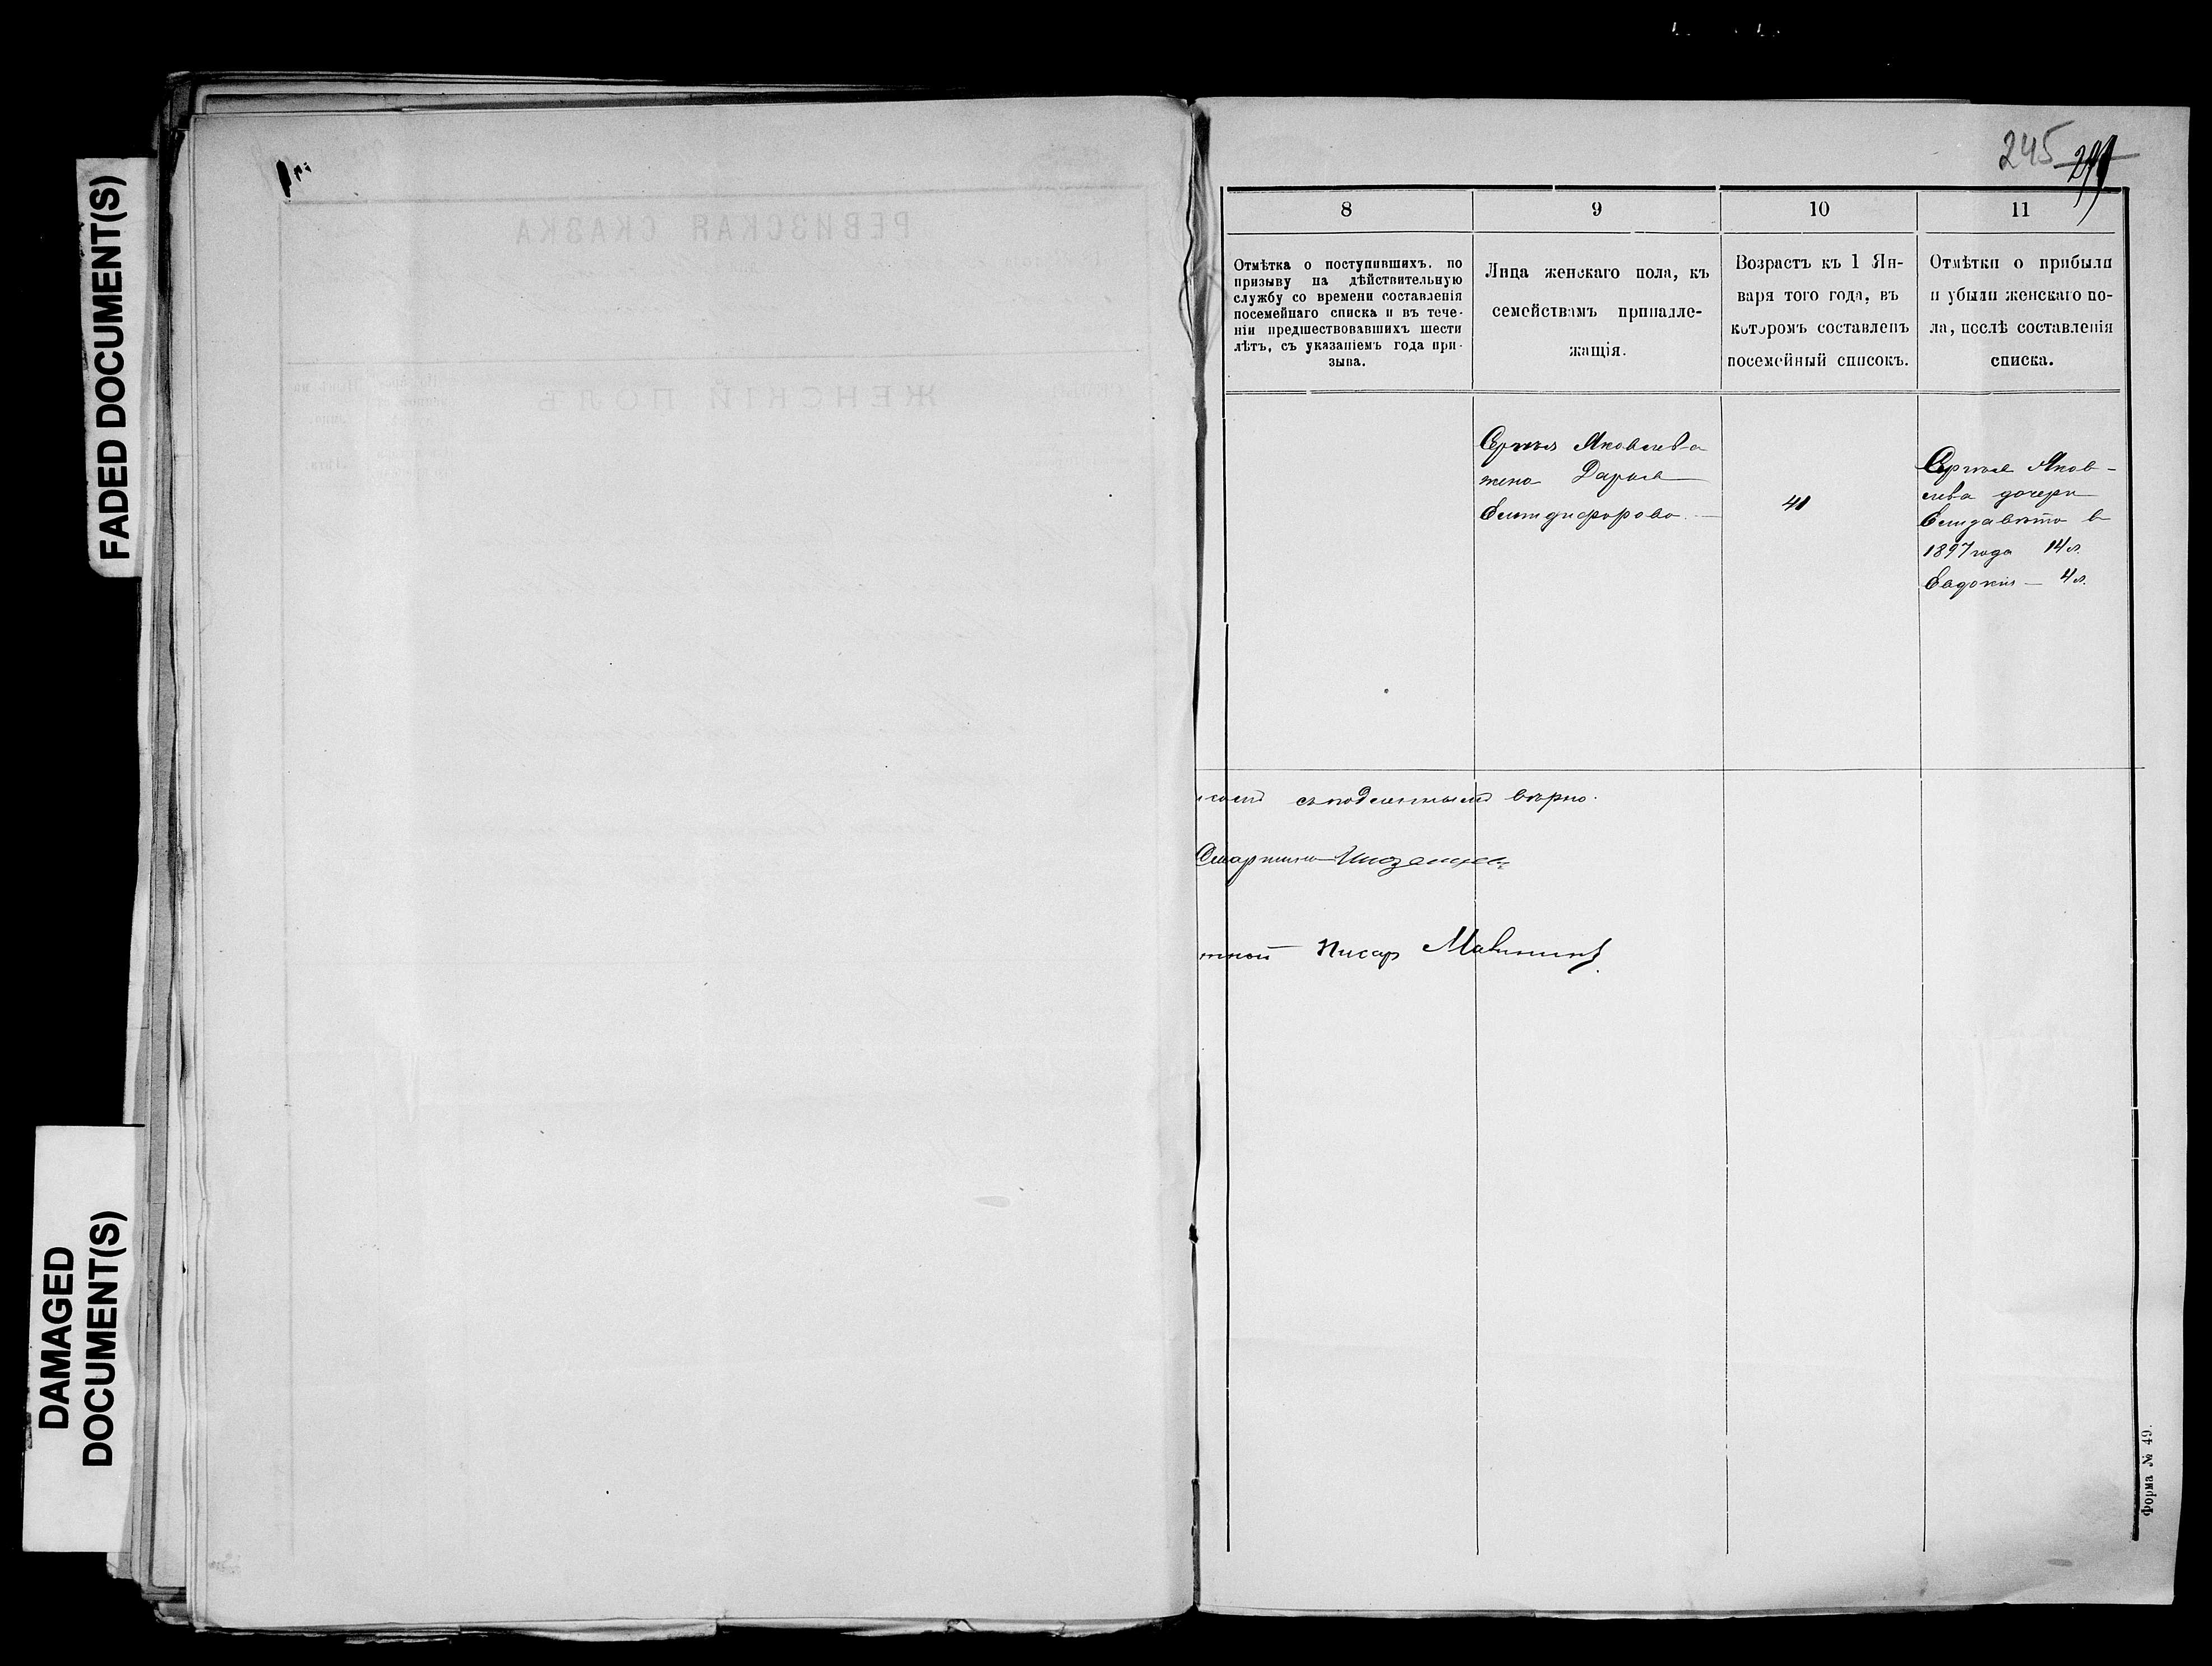 FADED DOCUMENT(S)
DAMAGED
DOCUMENT(S)
РЕВИЗСКАЯ СКАЗКА
ЖЕНСКІЙ ПОЛЪ
245
8
9
10
11
Отмѣтка о поступившихъ. по
призыву на дѣйствительную
службу со времени составленія
посемейнаго списка и въ тече-
ніи предшествовавшихъ шести
лѣтъ, съ указаніемъ года при-
зыва.
Лица женскаго пола, къ
семействамъ принадле-
жащія.
Возрастъ къ 1 Ян-
варя того года, въ
которомъ составленъ
посемейный списокъ.
Отмѣтки о прибыли
и убыли женскаго по-
ла, послѣ составленія
списка.
Сергѣя Яковлева
жена Дарья
41
Сергѣя Яков-
лева дочери
Елизавѣта в
1897 года 14 л.
Евдокія — 4 л.
съ подлиннымъ вѣрно.
Старшина
Писарь
Форма № 49.